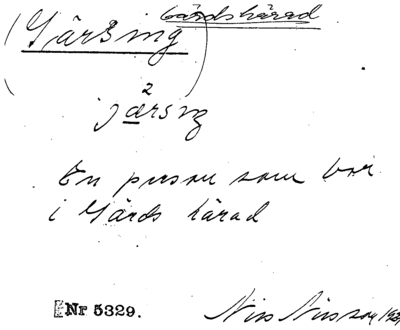 Gärds härad
(Gärsing)
j²ærsıŋ
En person som bor
i Gärds härad
Nr 5329.
Nils Nilsson